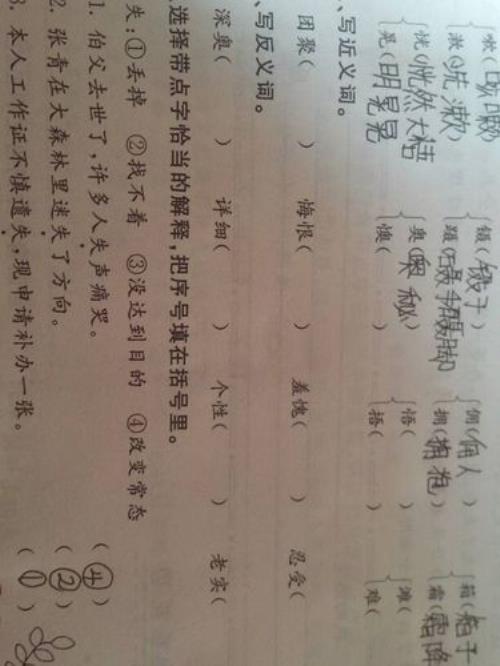 镊(镊子) 佣(佣人) 箱(箱子
漱(洗漱) 蹑(蹑手蹑脚 拥(拥抱) 霜(霜降
恍(恍然大悟 奥(奥秘) 悟( ) 滩(
晃(明晃晃 懊( ) 捂( ) 难(
、写近义词。
团聚( ) 悔恨( ) 羞愧( ) 忍受(
、写反义词。
深奥( ) 详细( ) 个性( ) 老实(
选择带点字恰当的解释,把序号填在括号里。
失:①丢掉 ②找不着 ③没达到目的 ④改变常态
1. 伯父去世了,许多人失声痛哭。 (④)
2. 张青在大森林里迷失了方向。 (②)
3. 本人工作证不慎遗失,现申请补办一张。 (①)